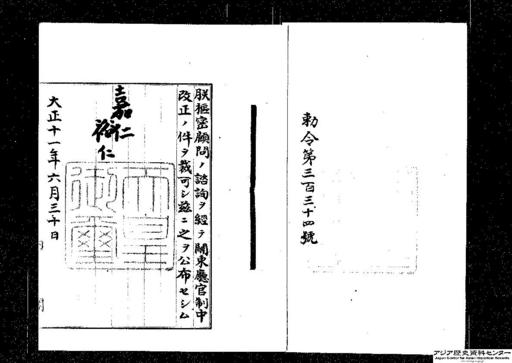 勅令第三百三十四號
朕樞密顧問ノ諮詢ヲ經テ關東廳官制中
改正ノ件ヲ裁可シ玆ニ之ヲ公布セシム
嘉仁
裕仁
天皇御璽
大正十一年六月三十日
アジア歴史資料センター
Japan Center for Asian Historical Records